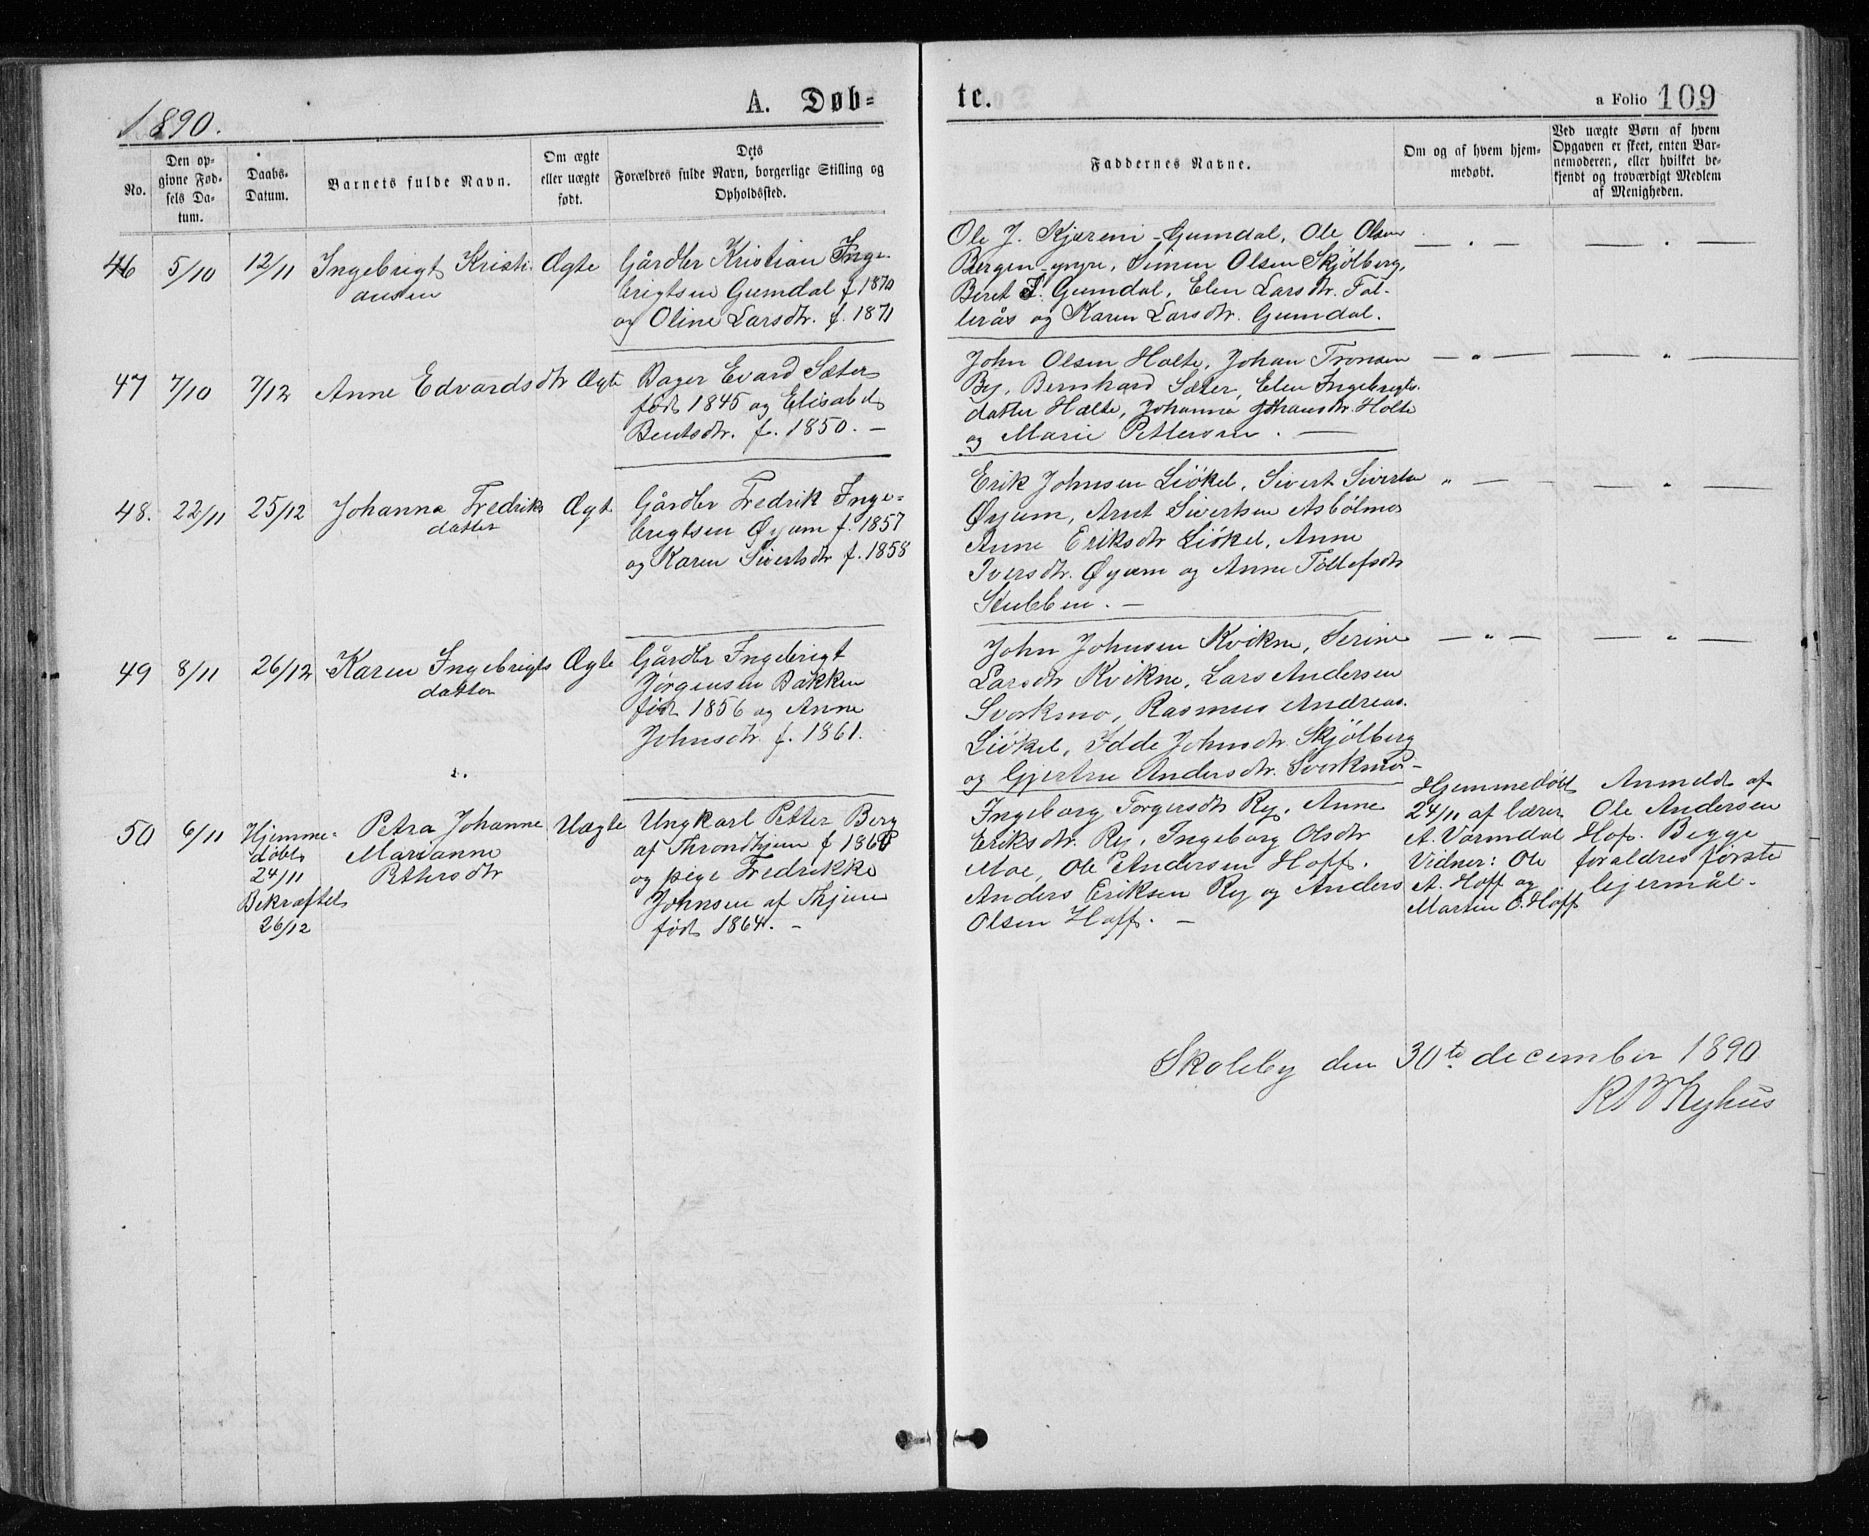 1890.
A. Døb-
te.
a Folio 109
No.
Den op-
givne Fød-
sels Da-
tum.
Daabs-
Datum.
Barnets fulde Navn.
Om ægte
eller uægte
født.
Dets
Forældres fulde Navn, borgerlige Stilling og
Opholdssted.
Faddernes Navne.
Om og af hvem hjem-
medøbt.
Ved uægte Børn af hvem
Opgaven er skeet, enten Bar-
nemoderen, eller hvilket be-
kjendt og troværdigt Medlem
af Menigheden.
46 5/10 12/11 Ingebrigt Kristi-
ansen
Ægte
Gårdbr Kristian Inge-
brigtsen Gumdal f. 1870
og Oline Larsdtr. f. 1871
Ole J. Kjæreni-Gumdal, Ole Olsen
Bergen-yngre, Simen Olsen Skjølberg,
Beret I. Gumdal, Elen Larsdtr. Fal-
lerås og Karen Larsdtr. Gumdal.
— " —
— " —
47 7/10 7/12 Anne Edvardsdtr Ægte
Bager Evard Sæter
født 1845 og Elisabet
Bentsdtr. f. 1850. —
John Olsen Holte, Johan Tronsen
By, Bernhard Sæter, Elen Ingebrigts-
datter Holte, Johanna Johansdtr. Holte
og Marie Petterson. —
— " —
— " —
48. 22/11 25/12 Johanna Fredriks
datter
Ægt
Gårdbr Fredrik Inge-
brigtsen Øyum f. 1857
og Karen Sivertsdtr f. 1858
Erik Johnsen Liøkel, Sivert Siverts
Øyum, Arnt Sivertsen Asbølmo
Anne Eriksdtr Liøkel, Anne
Iversdtr. Øyum og Anne Tollefsdtr
Stubben. —
" — —
— " —
49 8/11 26/12 Karen Ingebrigts
datter
Ægte
Gårdbr Ingebrigt
Jørgensen Bakken
født 1856 og Anne
Johnsdtr. f. 1861.
John Johnsen Kvikne, Serine
Larsdtr Kvikne, Lars Andersen
Svorkmo, Rasmus Andreas.
Liøkel, Idde Johnsdtr. Skjølberg
og Gjertru Andersdtr. Svorkmo —
— " —
— " —
50 6/11 Hjemme-
døbt
24/11
Bekræftet
26/12
Petra Johanne
Marianne
Pettersdtr
Uægte
Ungkarl Petter Berg
af Throndhjem f 1866
og pige Fredrikke
Johnsen af Thjem
født 1864. —
Ingeborg Torgersdtr Ry, Anne
Eriksdtr. Ry, Ingeborg Olsdtr
Moe, Ole Andersen Hoff.
Anders Eriksen Ry og Anders
Olsen Hoff. —
Hjemmedøbt
24/11 af lærer
A. Vormdal
Vidner: Ole
A. Hoff og
Marten O. Hoff
Anmeldt af
Ole Andersen
Hof. Begge
foraldres første
lejermål.
Skoleby den 30te december 1890